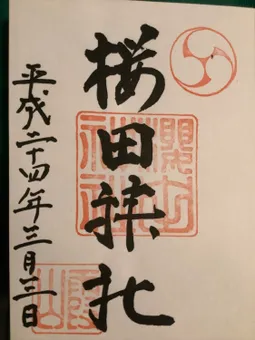 桜田神社
平成二十四年三月三日